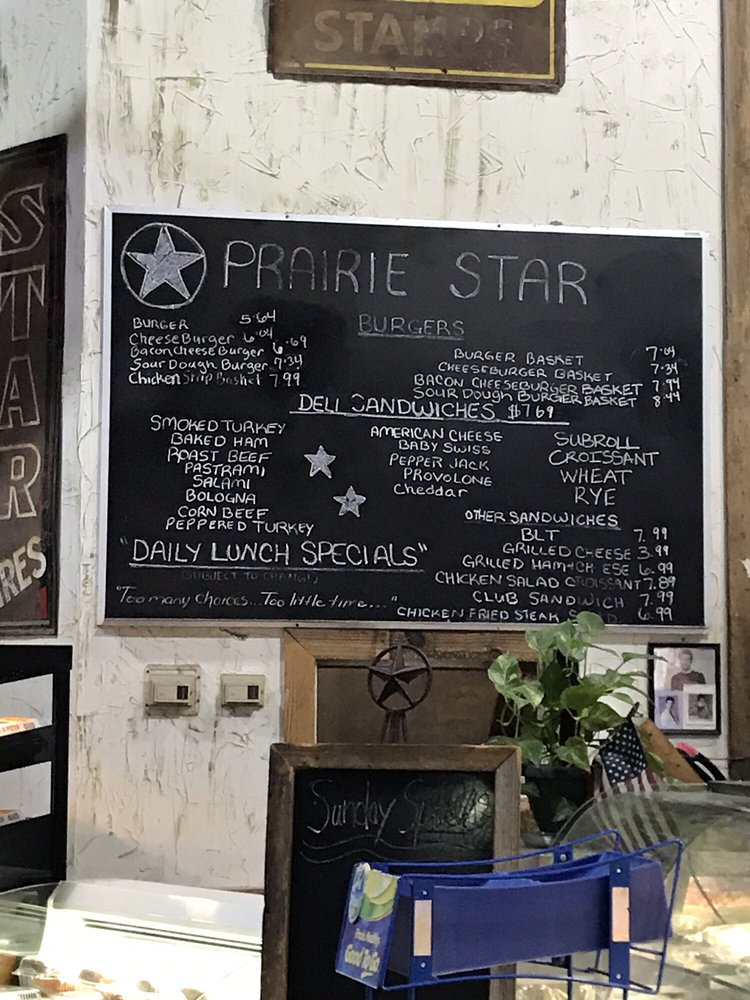 STAMPS
STAR
PRAIRIE STAR
BURGERS
BURGER 5.64
CheeseBurger 6.04
Bacon Cheese Burger 6.69
Sour Dough Burger 7.34
Chicken Strip Basket 7.99
BURGER BASKET 7.04
CHEESEBURGER BASKET 7.34
BACON CHEESEBURGER BASKET 7.94
SOUR DOUGH BURGER BASKET 8.44
DELI SANDWICHES $7.69
SMOKED TURKEY
BAKED HAM
ROAST BEEF
PASTRAMI
SALAMI
BOLOGNA
CORN BEEF
PEPPERED TURKEY
AMERICAN CHEESE
BABY SWISS
PEPPER JACK
PROVOLONE
Cheddar
SUBROLL
CROISSANT
WHEAT
RYE
OTHER SANDWICHES
BLT 7.99
GRILLED CHEESE 3.99
GRILLED HAM+CH ESE 6.99
CHICKEN SALAD CROISSANT 7.89
CLUB SANDWICH 7.99
CHICKEN FRIED STEAK 6.99
"DAILY LUNCH SPECIALS"
(SUBJECT TO CHANGE)
"Too many choices...Too little time..."
Sunday